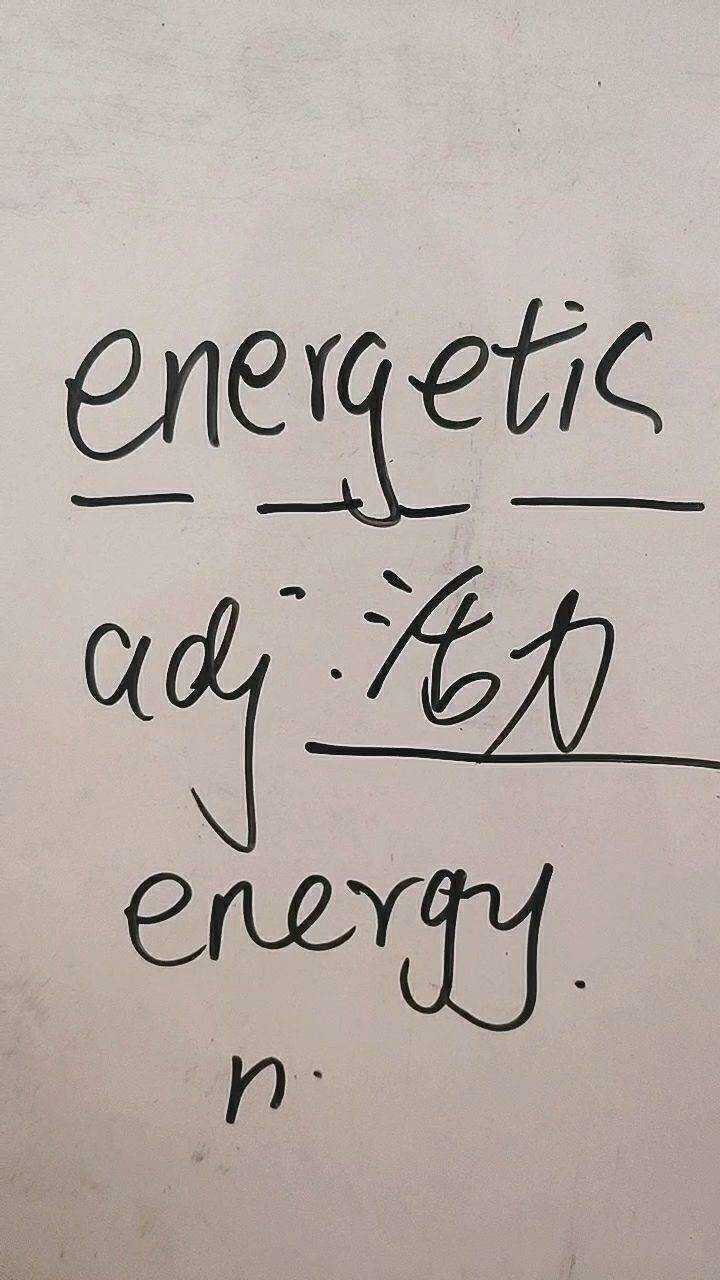 energetic
adj. 活力
energy.
n.